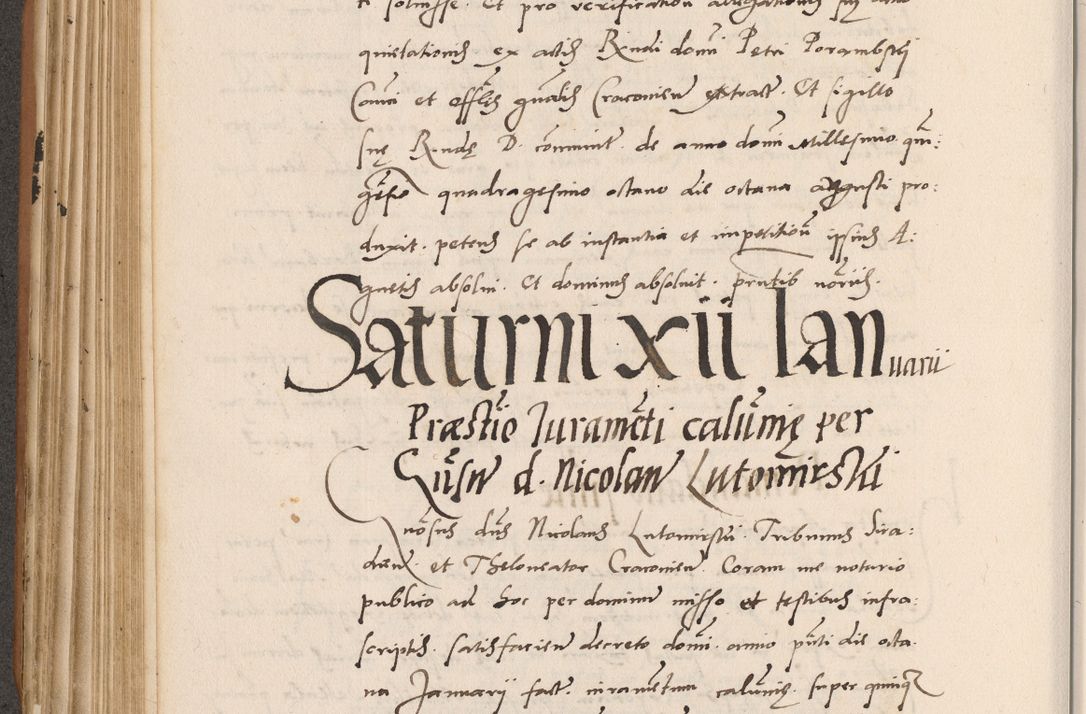 et pro verification allegationum
quietationis ex actis Rendi domi Petri Porambskj
Canci et offlis gnalis Cracovien extract. Et sigillo
suę R. ndę D. communit. de anno domi Millesimo qui:
gesio quadragesimo octavo die octava augusti pro:
duxit. petens se ab instantia et impetitioni ipsius A:
absolvi. Et dominus absolvit. pntib
Saturni xii Ianuarii
Præstūio Iuramēti calūnię per
d. Nicolau Lutomirski
dns Nicolaus Lutomirskij Tribunus Sira:
dien. et Theloneator Cracovien. Coram me notario
publico ad hoc per dominum misso et testibus infra:
scriptis. satisfacien decreto domi. anno pnti die octa
na Januarij fact. iuramentum calunię. super quinq